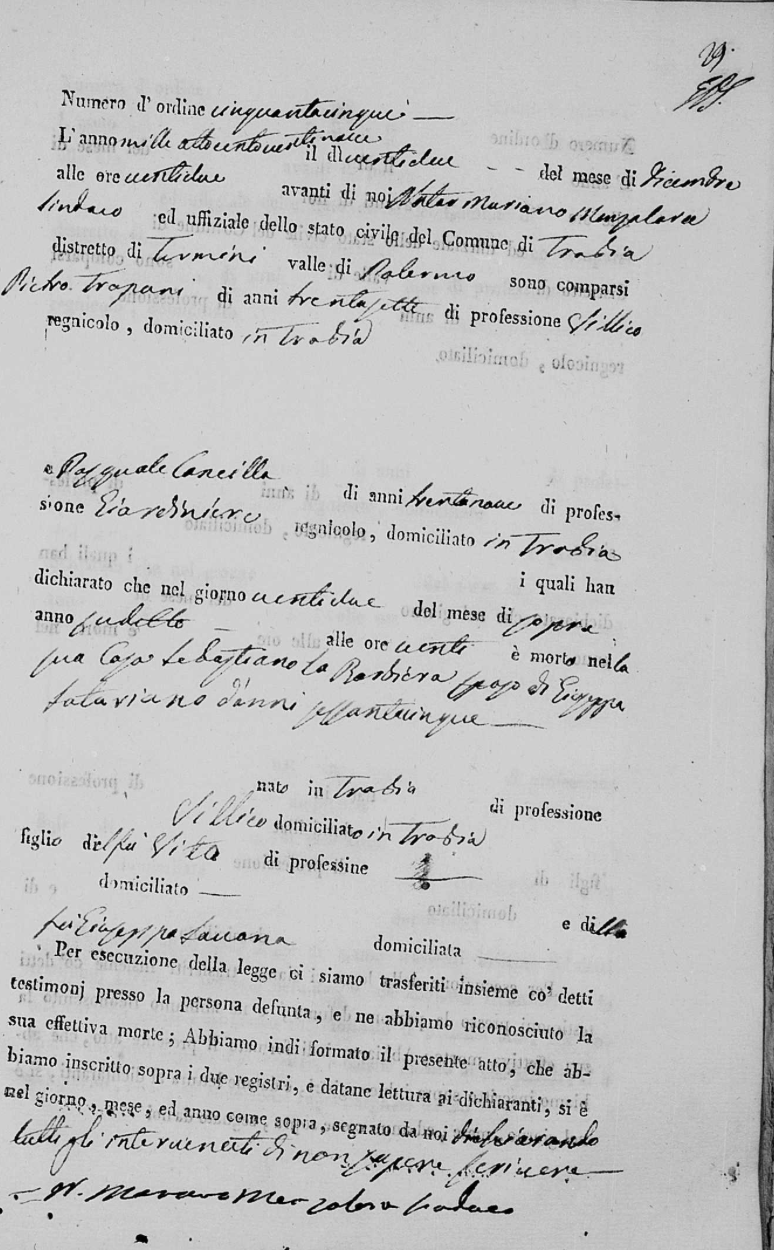 29.
Numero d' ordine cinquantacinque
L' anno mille ottocentoventinove il dì ventidue del mese di Dicembre
alle ore ventidue avanti di noi Notar Mariano Menzalora
Sindaco ed uffiziale dello stato civile del Comune di Trabia
distretto di Termini valle di Palermo sono comparsi
Pietro Trapani di anni trentasette di professione Villico
regnicolo, domiciliato in Trabia
e Pasquale Cancilla di anni trentanove di profes-
sione Giardiniere regnicolo, domiciliato in Trabia
i quali han
dichiarato che nel giorno ventidue del mese di sopra
anno sudetto alle ore venti è morto nella
sua Casa Sebastiano la Barbera sposo di Giuseppa
d'anni sessantacinque
nato in Trabia di professione
Villico domiciliato in Trabia
figlio del fù Vito di professine
domiciliato
e della
fù Giuseppa domiciliata
Per esecuzione della legge ci siamo trasferiti insieme co' detti
testimonj presso la persona defunta, e ne abbiamo riconosciuto la
sua effettiva morte; Abbiamo indi formato il presente atto, che ab-
biamo inscritto sopra i due registri, e datane lettura ai dichiaranti, si è
nel giorno, mese, ed anno come sopra, segnato da noi dichiarando
tutti gl'intervenenti di non sapere scrivere
N. Mariano Menzalora Sindaco